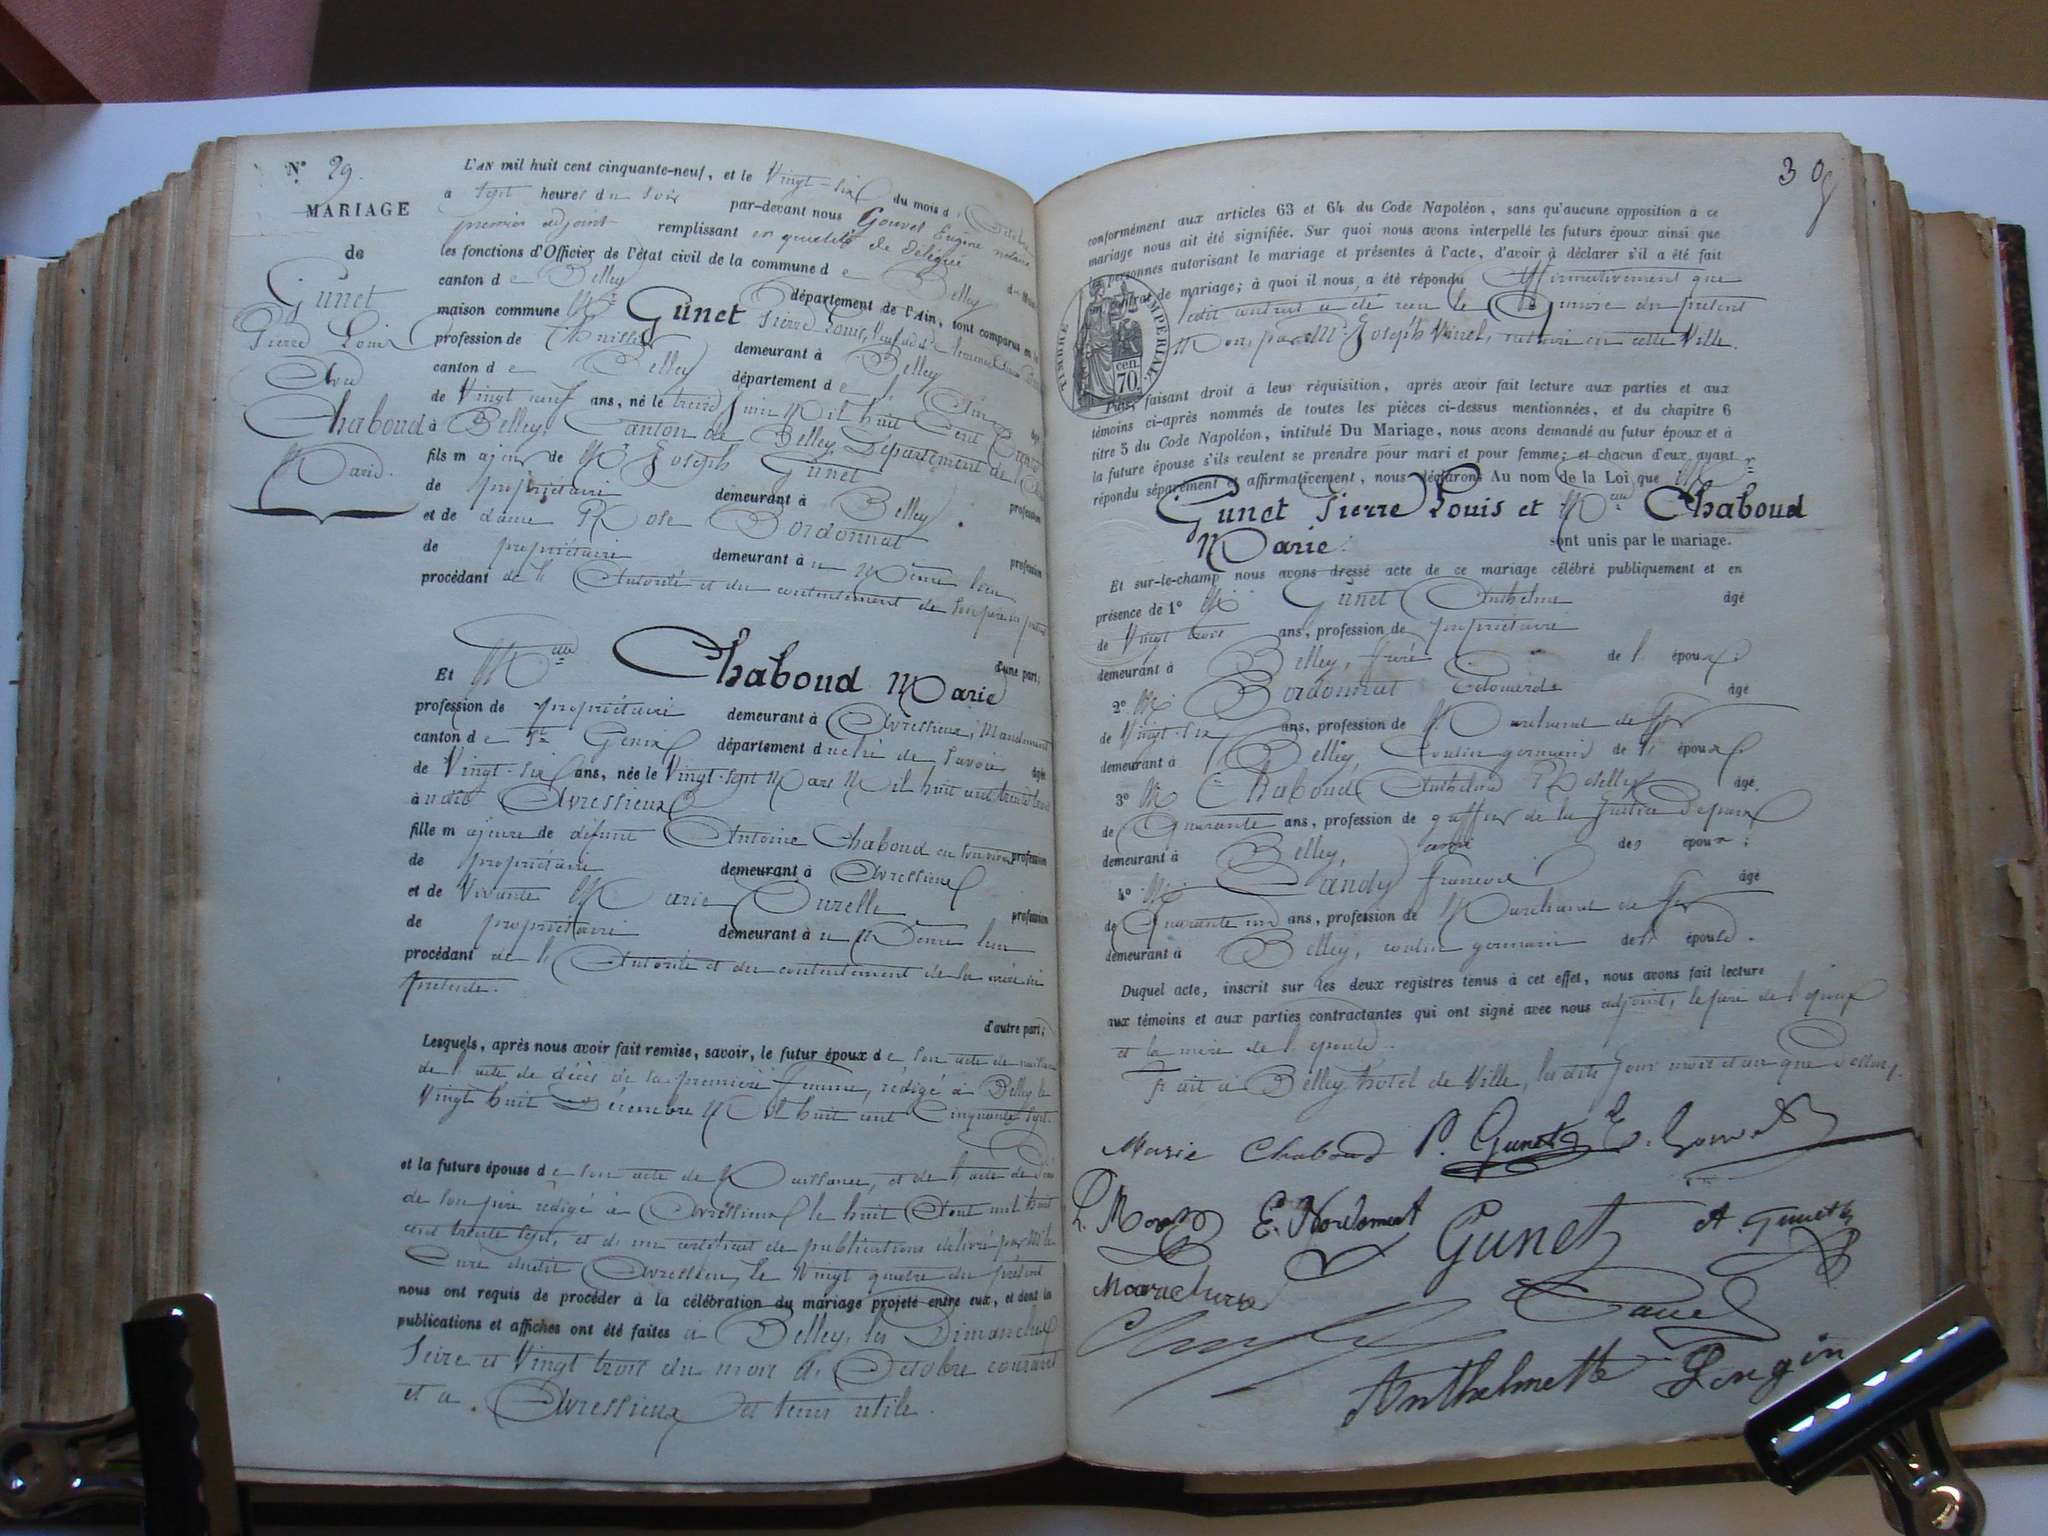 N° 29.
MARIAGE
de
Gunet
Pierre Louis
Avec
Chaboud
Marie.
L'AN mil huit cent cinquante-neuf, et le Vingt-six du mois d' Octobre
à Sept heures du Soir par-devant nous Gouvet Eugène notaire
premier adjoint remplissant en qualité de délégué
les fonctions d'Officier de l'état civil de la commune de Belley
canton de Belley département de l'Ain, sont comparus en la
maison commune Mr Gunet Pierre Louis, Veuf de
profession de demeurant à Belley
canton de Belley département de l'Ain âgé
de Vingt neuf ans, né le treize Juin Mil huit Cent Trente
à Belley, Canton de Belley, Département de l'Ain
fils majeur de Mr Joseph Gunet profession
de propriétaire demeurant à Belley.
et de dame Rose Bordonnat profession
de propriétaire demeurant à u Même lieu
procédant de l'Autorité et du contentement de son père ici présent
d'une part;
Et Melle Chaboud Marie
profession de propriétaire demeurant à Avressieux, Mandement
canton de St Genix département duché de Savoie âgée
de Vingt-six ans, née le Vingt-sept Mars Mil huit cent trente trois
à udit Avressieux
fille majeure de défunt Antoine Chaboud en son vivant profession
de propriétaire demeurant à Avressieux
et de Vivante Marie Curelle profession
de propriétaire demeurant à u Même lieu
procédant de l'Autorité et du contentement de sa mère ici
présente.
d'autre part;
Lesquels, après nous avoir fait remise, savoir, le futur époux de son acte de naissance
de l'acte de décès de sa première femme, rédigé à Belley le
Vingt huit Décembre Mil huit cent Cinquante Sept.
et la future épouse de son acte de Naissance, et de l'acte de décès
de son père rédigé à Avressieux le huit Août mil huit
cent trente sept, et d'un certificat de publications délivré par Mr le
Curé dudit Avressieux, le Vingt quatre du présent
nous ont requis de procéder à la célébration du mariage projeté entre eux, et dont les
publications et affiches ont été faites à Belley, les Dimanches
Seize et Vingt trois du mois d'Octobre courant
et à Avressieux en tems utile.
30
conformément aux articles 63 et 64 du Code Napoléon, sans qu'aucune opposition à ce
mariage nous ait été signifiée. Sur quoi nous avons interpellé les futurs époux ainsi que
les personnes autorisant le mariage et présentes à l'acte, d'avoir à déclarer s'il a été fait
contrat de mariage; à quoi il nous a été répondu Affirmativement que
ledit contrat a été reçu le Quinze du présent
Mois, par Mr Joseph Vinet, notaire en cette Ville.
TIMBRE IMPÉRIAL
70 cen.
Puis, faisant droit à leur réquisition, après avoir fait lecture aux parties et aux
témoins ci-après nommés de toutes les pièces ci-dessus mentionnées, et du chapitre 6
titre 5 du Code Napoléon, intitulé Du Mariage, nous avons demandé au futur époux et à
la future épouse s'ils veulent se prendre pour mari et pour femme; et chacun d'eux ayant
répondu séparément et affirmativement, nous déclarons Au nom de la Loi que Mr
Gunet Pierre Louis et Melle Chaboud
Marie. sont unis par le mariage.
Et sur-le-champ nous avons dressé acte de ce mariage célébré publiquement et en
présence de 1° Mr Gunet Anthelme âgé
de Vingt trois ans, profession de propriétaire
demeurant à Belley, frère de l'époux;
2° Mr Bordonnat Edouard âgé
de Vingt-six ans, profession de Marchand de fer
demeurant à Belley, Cousin germain de l'époux
3° Mr Chaboud Anthelme âgé
de Quarante ans, profession de greffier de la Justice de paix
demeurant à Belley, ami des époux;
4° Mr Landy François âgé
de Quarante un ans, profession de Marchand de fer
demeurant à Belley, cousin germain de l'épouse.
Duquel acte, inscrit sur les deux registres tenus à cet effet, nous avons fait lecture
aux témoins et aux parties contractantes qui ont signé avec nous adjoint, le père de l'époux
et la mère de l'épouse.
Fait à Belley, hôtel de Ville, les dits jour mois et an que dessus.
Marie Chaboud P. Gunet E. Gouvet
Gunet A. Gunet
Anthelmette Longin